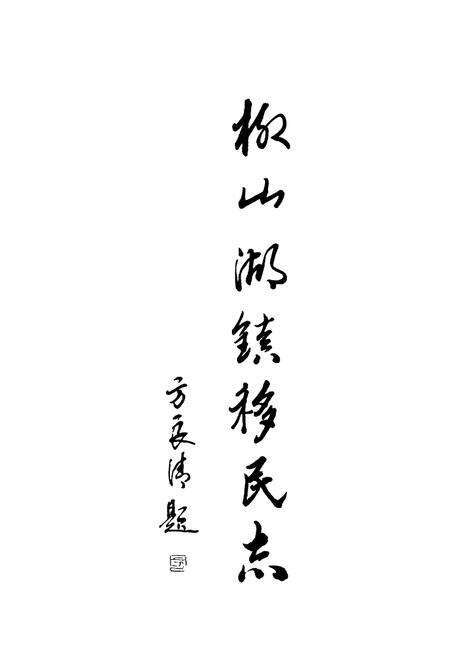 柳山湖镇移民志
方良清题